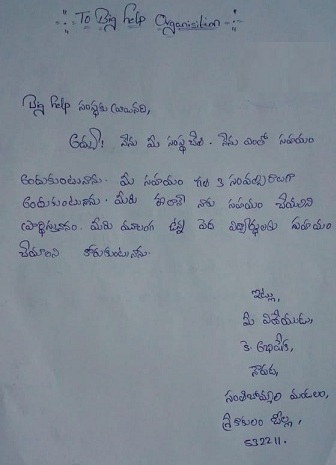 To Big help Organisition
Big help సంస్థకు వ్రాయునది,
అయ్యా! నేను మీ సంస్థ చేత. నేను ఎంతో సహాయం
అందుకుంటున్నాను. మీ సహాయం గత 3 సంవత్సరాలుగా
అందుకుంటున్నాను. మీరు ఈలాగే నాకు సహాయం చేయాలని
ప్రార్థిస్తున్నాను. మీరు మాలాగ ఉన్న పేద విద్యార్థులకు సహాయం
చేయాలని కోరుకుంటున్నాను.
ఇట్లు,
మీ విధేయుడు,
కె. అభిషేక్,
సంతబొమ్మాళి మండలం,
శ్రీకాకుళం జిల్లా,
532211.